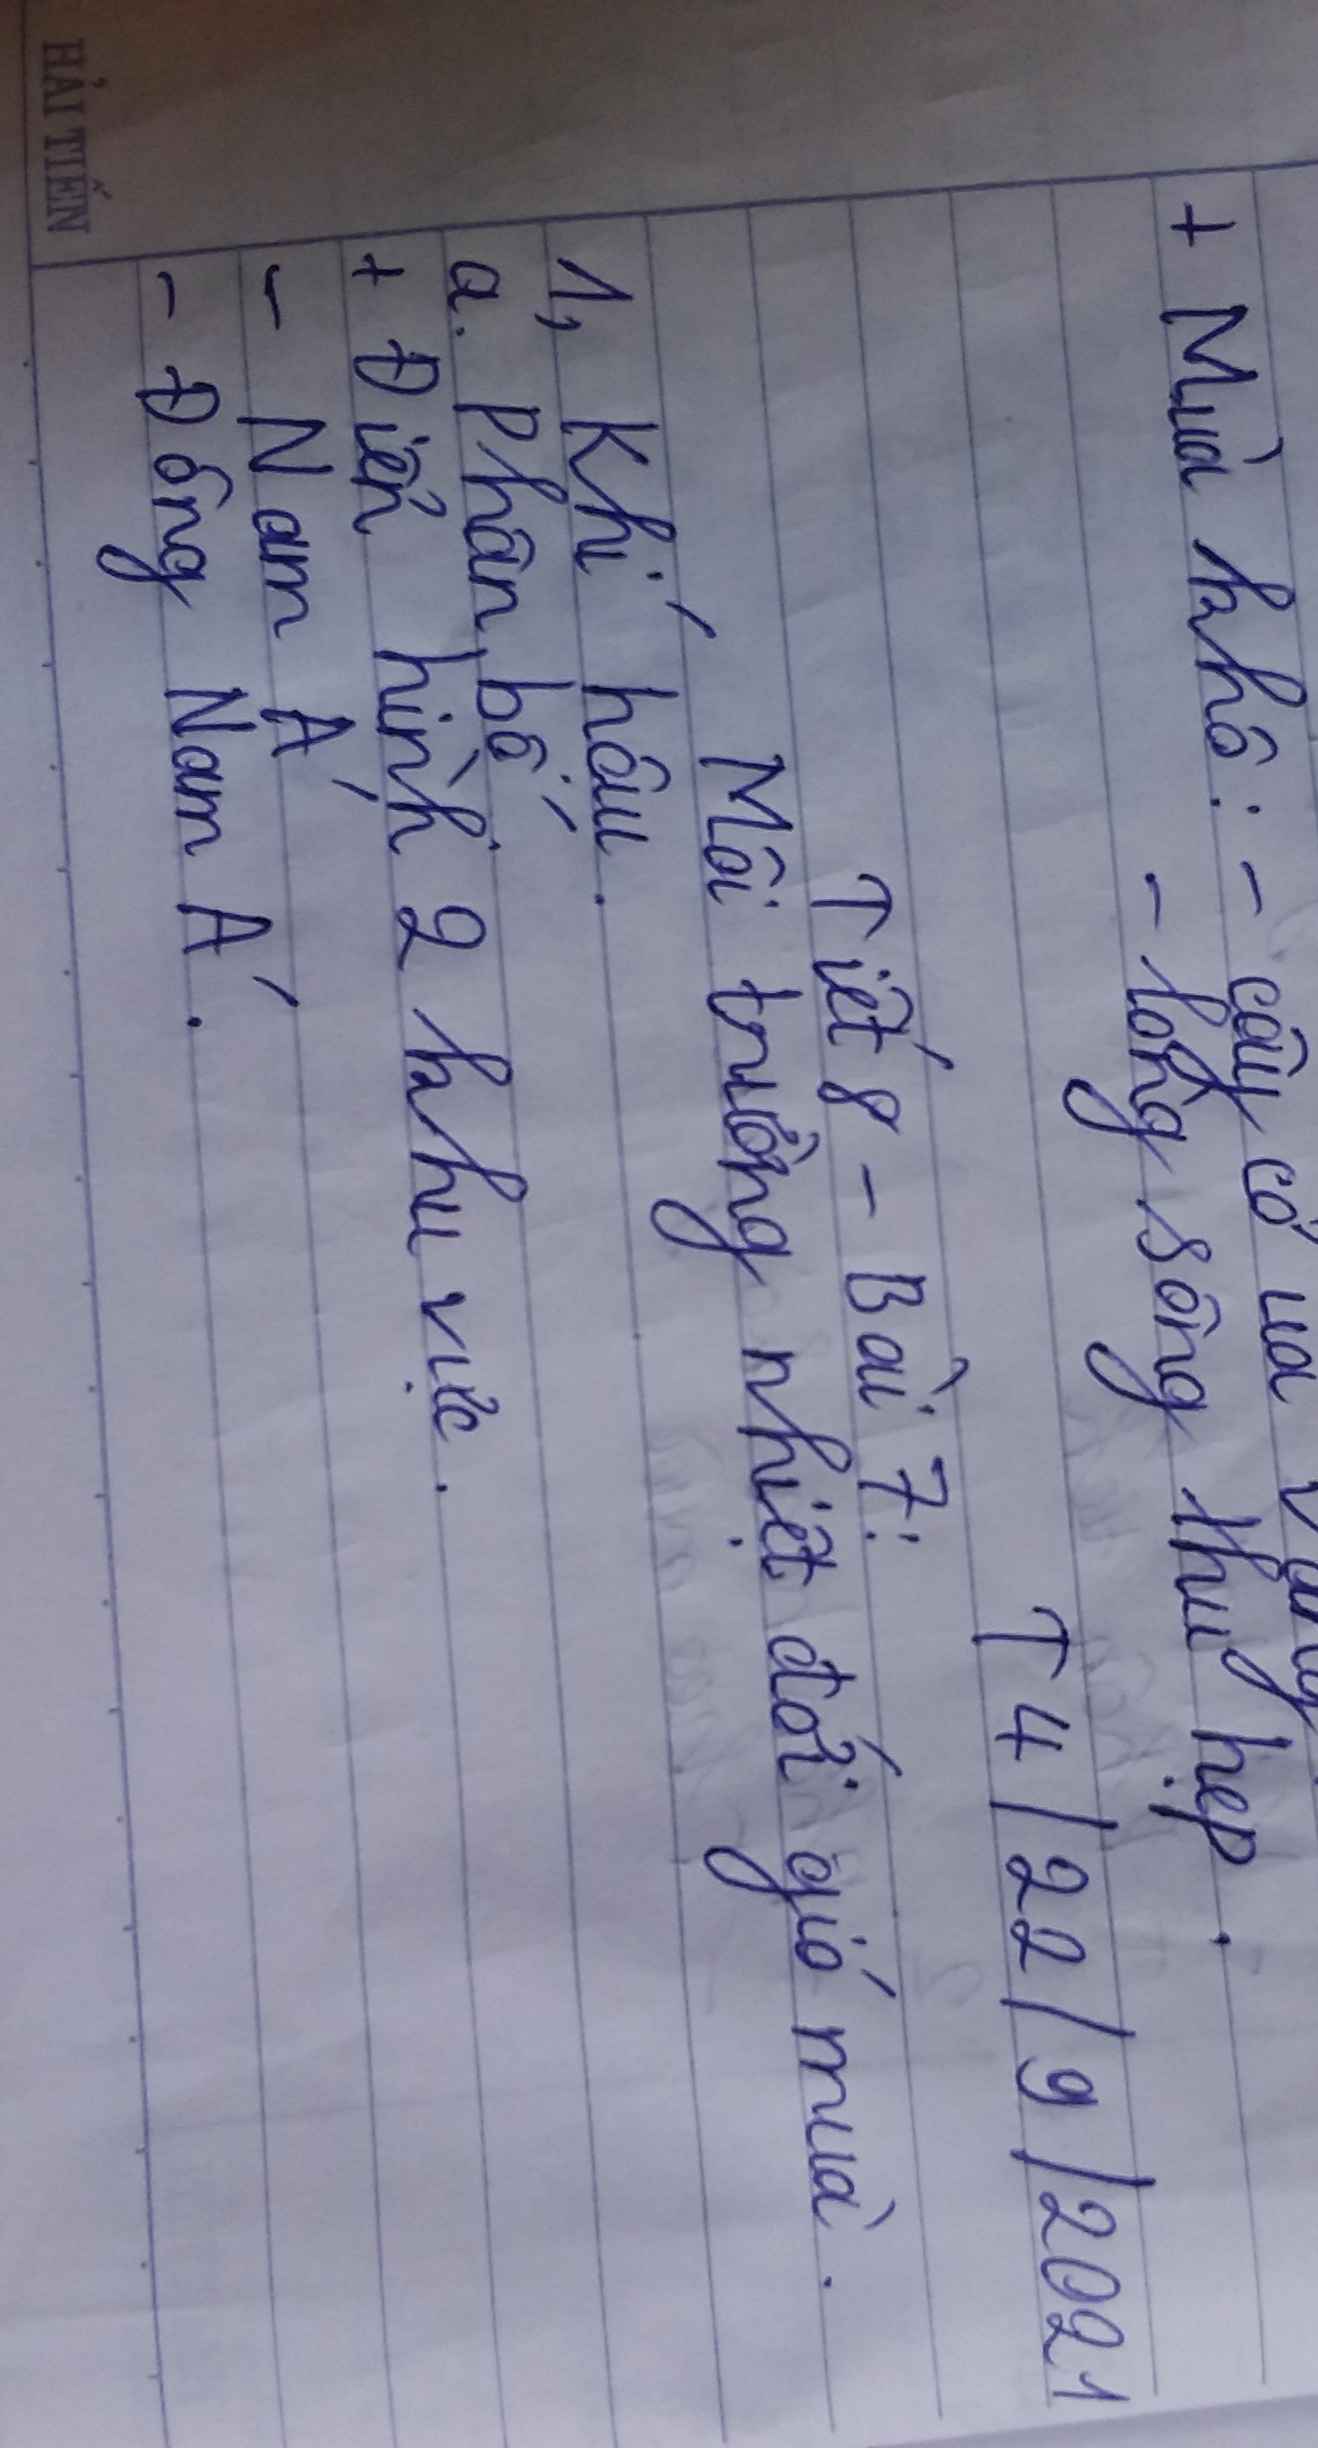 + Mùa khô: - cây cỏ úa vàng
- lòng sông thu hẹp.
T4/22/9/2021
Tiết 8 - Bài 7:
Môi trường nhiệt đới gió mùa.
1, Khí hậu.
a. Phân bố
+ Điển hình 2 khu vực.
- Nam Á
- Đông Nam Á.
HẢI TIẾN